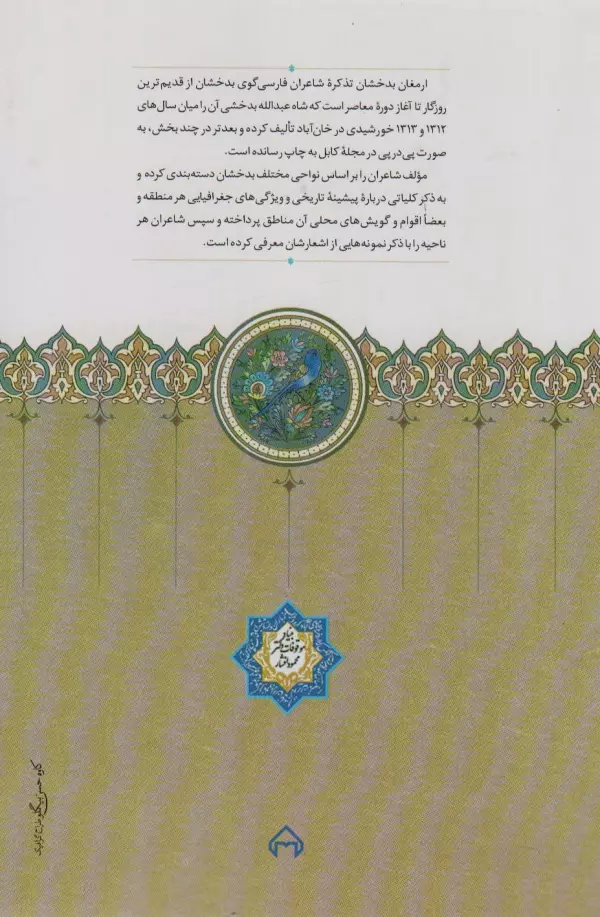 ارمغان بدخشان تذکرهٔ شاعران فارسی‌گوی بدخشان از قدیم‌ترین
روزگار تا آغاز دورهٔ معاصر است که شاه عبدالله بدخشی آن را میان سال‌های
۱۳۱۲ و ۱۳۱۳ خورشیدی در خان‌آباد تألیف کرده و بعدتر در چند بخش، به
صورت پی‌درپی در مجلهٔ کابل به چاپ رسانده است.
مؤلف شاعران را بر اساس نواحی مختلف بدخشان دسته‌بندی کرده و
به ذکر کلیاتی دربارهٔ پیشینهٔ تاریخی و ویژگی‌های جغرافیایی هر منطقه و
بعضاً اقوام و گویش‌های محلی آن مناطق پرداخته و سپس شاعران هر
ناحیه را با ذکر نمونه‌هایی از اشعارشان معرفی کرده است.
بنیاد
موقوفات دکتر
محمود افشار
کاوه حسن بیگلو طراح گرافیک